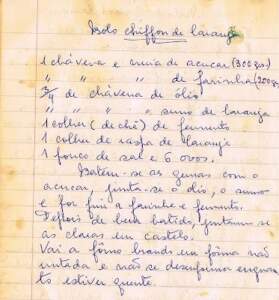 Bolo chiffon de laranja
1 chávena e meia de açucar (300 grs.)
" " " de farinha (200 grs
3/4 de chávena de óleo
" " " " sumo de laranja
1 colher (de chá) de fermento
1 colher de raspa de laranja
1 pouco de sal e 6 ovos.
Batem-se as gemas com o
açucar, junta-se o óleo, o sumo
e por fim a farinha e fermento.
Depois de bem batido, juntam-se
as claras em castelo.
Vai a fôrno brando em fôrma não
untada e não se desenforma enquan
to estiver quente.